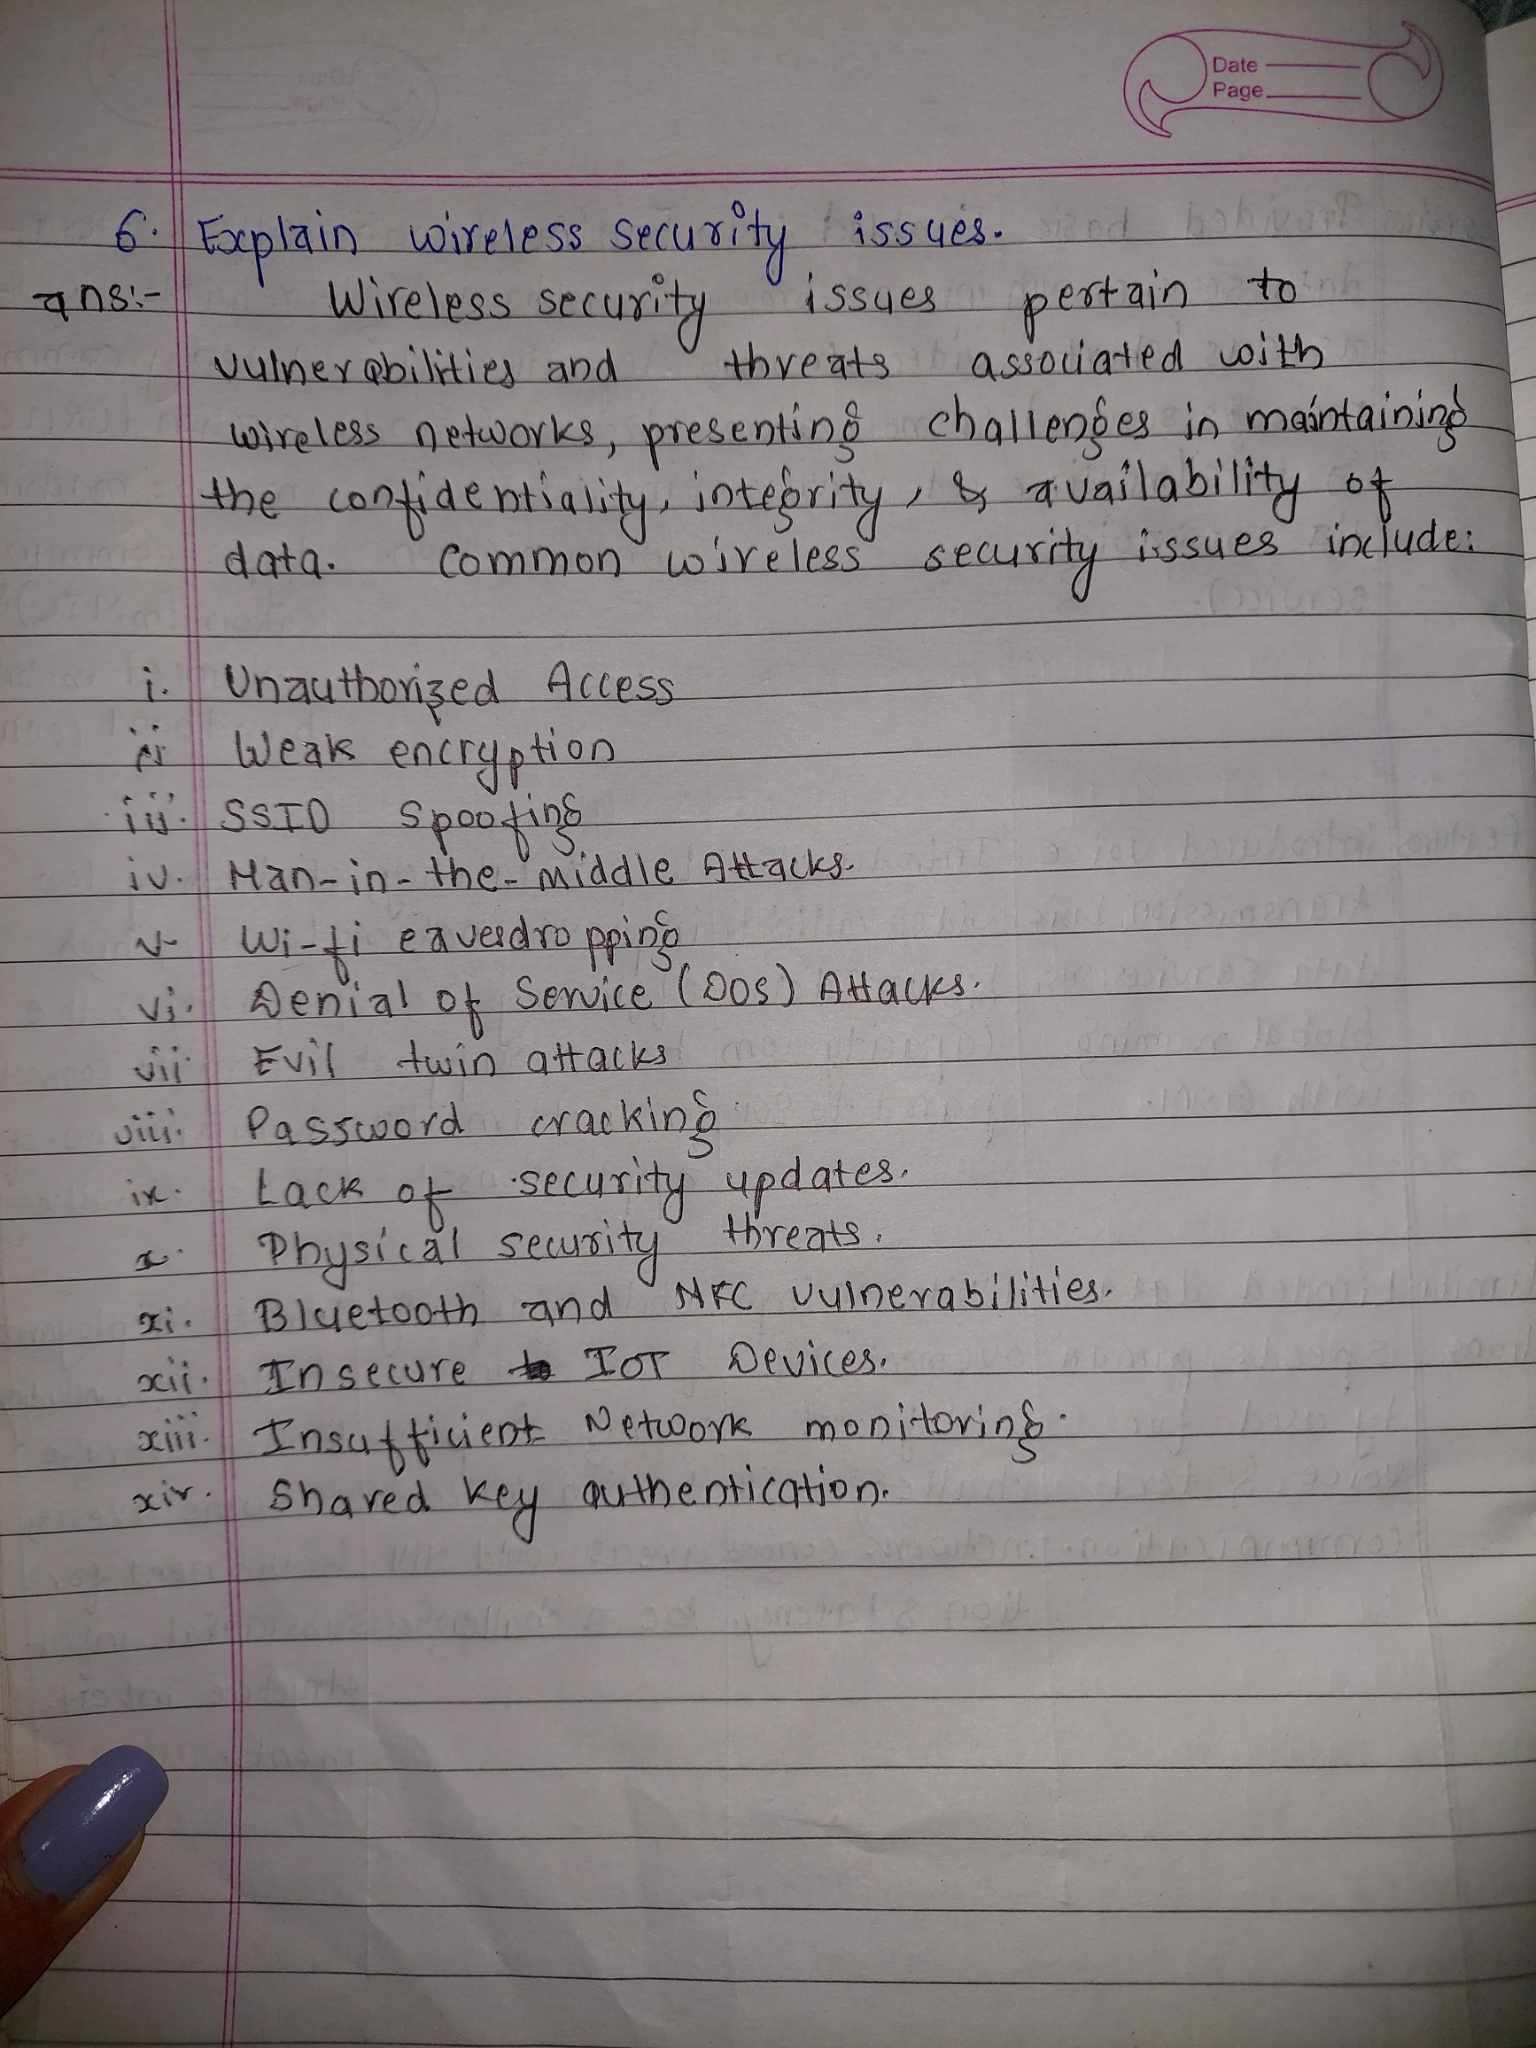 Date
Page
6. Explain wireless security issues.
ans:- Wireless security issues pertain to
vulnerabilities and threats associated with
wireless networks, presenting challenges in maintaining
the confidentiality, integrity, & availability of
data. Common wireless security issues include:
i. Unauthorized Access
ii Weak encryption
iii. SSID Spoofing
iv. Man-in-the-middle Attacks.
v Wi-fi eavesdropping
vi. Denial of Service (DOS) Attacks.
vii Evil twin attacks
viii. Password cracking
ix. Lack of security updates.
x. Physical security threats.
xi. Bluetooth and NFC vulnerabilities.
xii. Insecure IOT Devices.
xiii. Insufficient Network monitoring.
xiv. Shared key authentication.